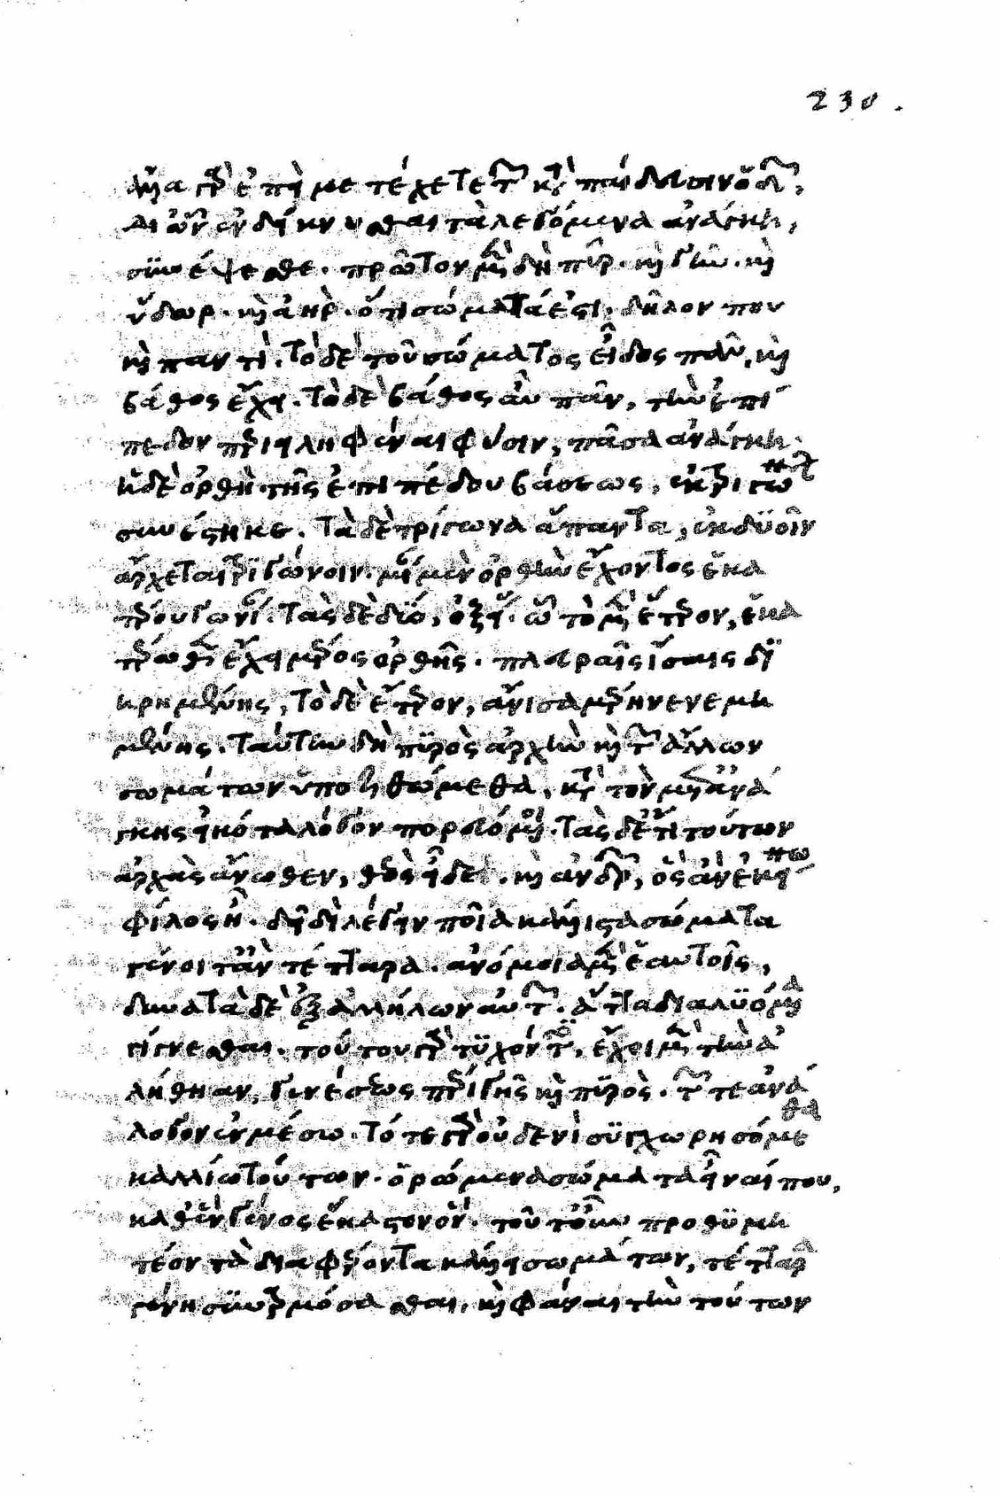 230.
ἀλλὰ γὰρ ἐπεὶ μετέχετε τῶν κατὰ παίδευσιν ὁδῶν,
δι' ὧν ἐνδείκνυσθαι τὰ λεγόμενα ἀνάγκη,
συνέψεσθε. πρῶτον μὲν δὴ πῦρ. καὶ γῆ. καὶ
ὕδωρ. καὶ ἀὴρ. ὅτι σώματά ἐστι. δῆλόν που
καὶ παντί. τὸ δὲ τοῦ σώματος εἶδος πᾶν, καὶ
βάθος ἔχει. τὸ δὲ βάθος αὖ πᾶν, τὴν ἐπί
πεδον περιειληφέναι φύσιν, πᾶσα ἀνάγκη.
ἡ δὲ ὀρθὴ τῆς ἐπιπέδου βάσεως, ἐκ τριγώνων
συνέστηκε. τὰ δὲ τρίγωνα ἅπαντα, ἐκ δυοῖν
ἄρχεται τριγώνοιν. μίαν μὲν ὀρθὴν ἔχοντος ἑκα
τέρου γωνίαν. τὰς δὲ δύο, ὀξείας. ὧν τὸ μὲν ἕτερον, ἑκα
τέρωθεν ἔχει μέρος ὀρθῆς. πλευραῖς ἴσαις δι
ῃρημένης, τὸ δὲ ἕτερον, ἄνισα μέρη νενεμη
μένης. ταύτην δὴ πυρὸς ἀρχὴν καὶ τῶν ἄλλων
σωμάτων ὑποτιθώμεθα, κατὰ τὸν μετ' ἀνά
γκης εἰκότα λόγον πορευόμενοι. τὰς δ' ἔτι τούτων
ἀρχὰς ἄνωθεν, θεὸς οἶδε. καὶ ἀνδρῶν, ὃς ἂν ἐκείνῳ
φίλος ᾖ. δεῖ δὴ λέγειν ποῖα κάλλιστα σώματα
γένοιτ' ἂν τέτταρα. ἀνόμοια μὲν ἑαυτοῖς,
δυνατὰ δὲ ἐξ ἀλλήλων αὐτῶν. ἄττα διαλυόμενα
γίγνεσθαι. τούτου γὰρ τυχόντες, ἔχομεν τὴν ἀ
λήθειαν, γενέσεως πέρι γῆς καὶ πυρὸς. τῶν τε ἀνὰ
λόγον ἐν μέσῳ. τότε γὰρ οὐδενὶ συγχωρησόμεθα
καλλίω τούτων. ὁρώμενα σώματα εἶναί που,
καθ' ἓν γένος ἕκαστον ὄν. τοῦτ' οὖν προθυμη
τέον τὰ διαφέροντα κάλλει σωμάτων, τέτταρα
γένη συναρμόσασθαι, καὶ φάναι τὴν τούτων